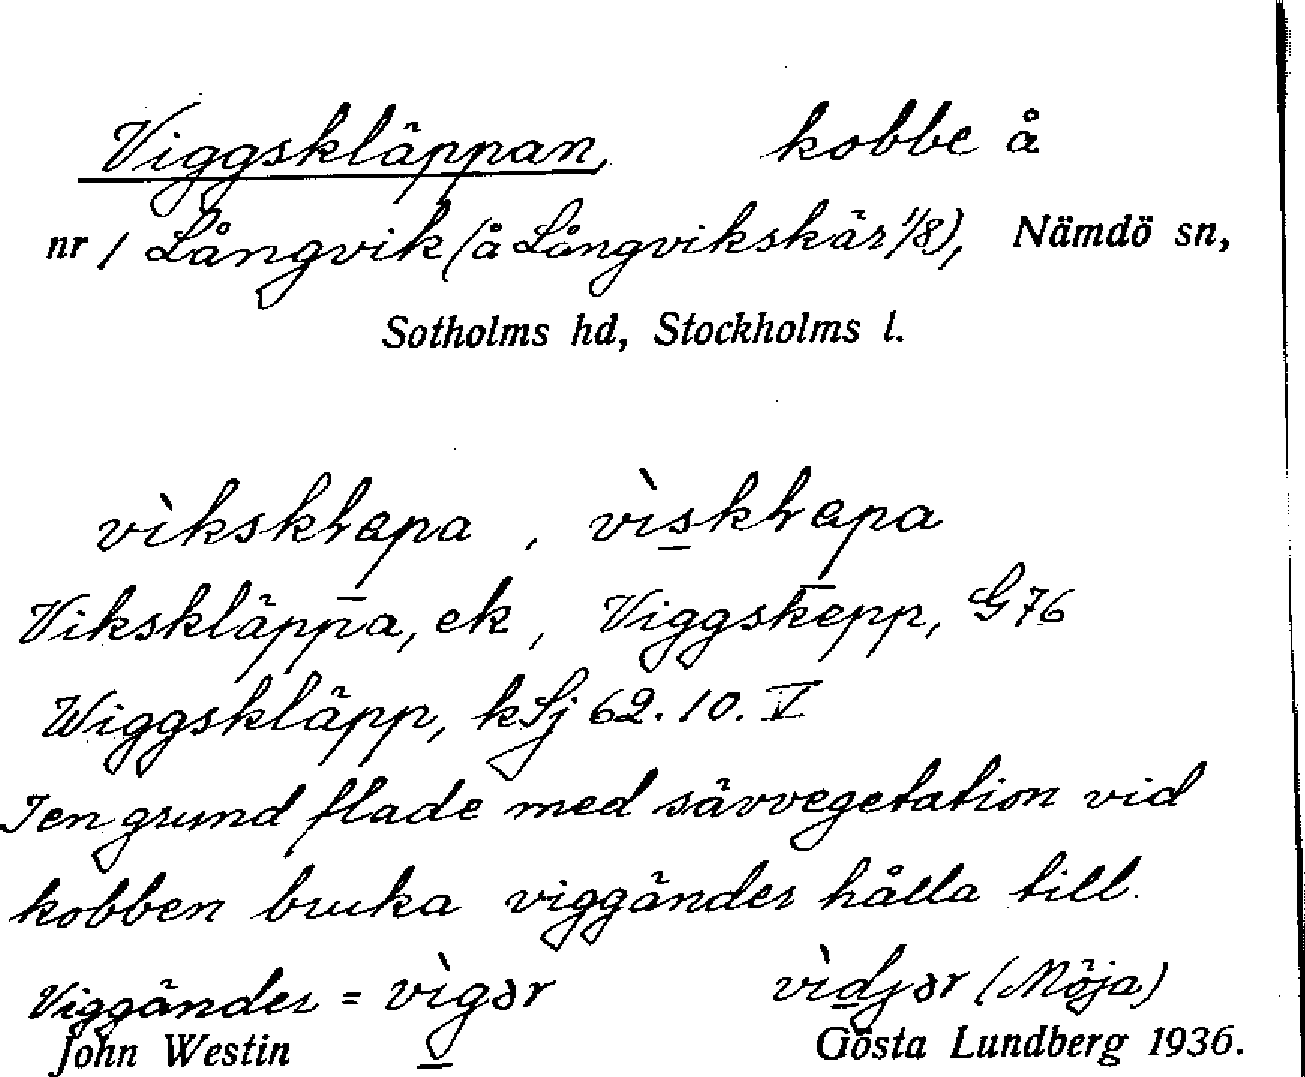 Viggskläppan, kobbe å
nr 1 Långvik (å Långvikskär 1/8), Nämdö sn,
Sotholms hd, Stockholms l.
Vikskläppa, ek, Viggskepp, G 76
Wiggskläpp, kSj 62. 10. V
I en grund flade med sävvegetation vid
kobben bruka viggänder hålla till.
Viggänder = vìgər vìdjər (Möja)
John Westin Gösta Lundberg 1936.